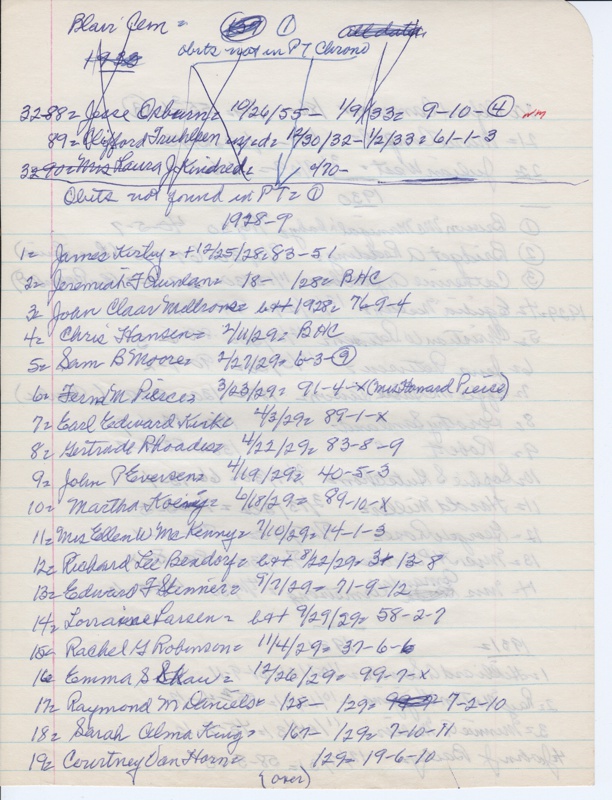 Blair Cem = ①
Obits not in PT Chrono
3288= Jesse Osburn= 10/26/55- 1/9/33= 9-10-④ NM
89= Clifford Truhlsen 12/30/32-1/2/33= 61-1-3
3290= Mrs Laura J Kindred= 9/70-
Obits not found in PT= ①
1928-9
1= James Kirby= + 12/25/28=83-51
2= Jeremiah F Quinlan= 18- /28= BHC
3= Joan Claar b++ 1928= 76-9-4
4= Chris Hansen= 2/11/29= BHC
5= Sam B Moore= 2/27/29= 6-3-⑨
6= Fern M Pierce= 3/23/29= 91-4-X (Mrs Howard Pierce)
7= Earl Edward Kirk= 4/3/29= 89-1-X
8= Gertrude Rhoades= 4/22/29= 83-8-9
9= John P Eversen= 4/19/29= 40-5-3
10= Martha 6/18/29= 89-10-X
11= Mrs Ellen W McKenny= 7/10/29=14-1-3
12= Richard Lee Bendorf= b++ 8/22/29= 13-8
13= Edward F Stinner= 9/7/29= 71-9-12
14= Lorraine Larsen= b++ 9/29/29= 58-2-7
15= Rachel G Robinson= 11/4/29= 37-6-6
16= Emma S Shaw= 12/26/29= 99-7-X
17= Raymond M Daniels= 128- /29= 7-2-10
18= Sarah Alma King= 167- /29= 7-10-11
19= Courtney Van Horn= /29= 19-6-10
(over)